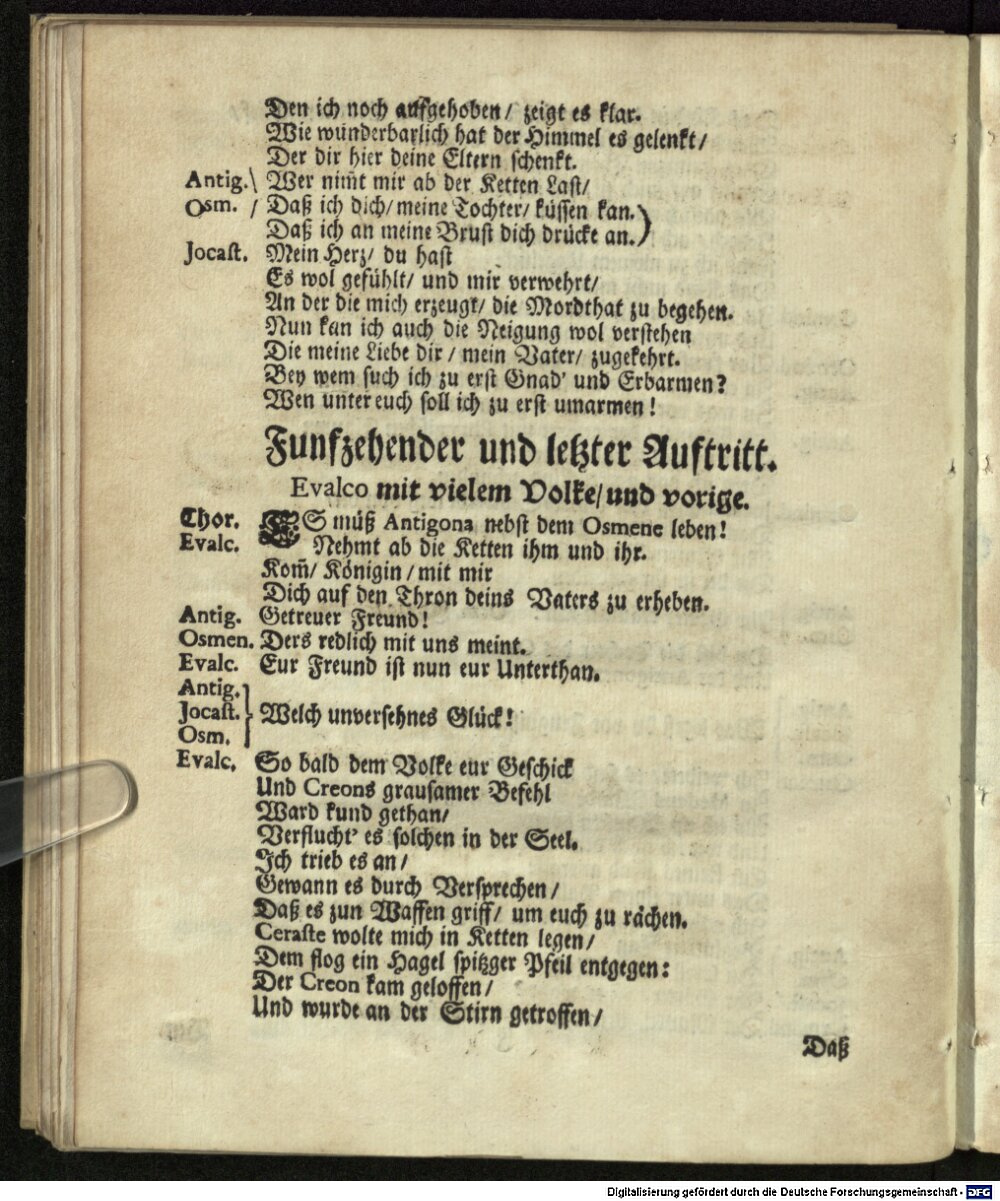 Den ich noch auffgehoben/ zeigt es klar.
Wie wunderbarlich hat der Himmel es gelenkt/
Der dir hier deine Eltern schenkt.
Antig. \ Wer nim̃t mir ab der Ketten Last/
Osm. / Daß ich dich/ meine Tochter/ küssen kan.)
Daß ich an meine Brust dich drücke an.)
Jocast. Mein Herz/ du hast
Es wol gefühlt/ und mir verwehrt/
An der die mich erzeugt/ die Mordthat zu begehen.
Nun kan ich auch die Neigung wol verstehen
Die meine Liebe dir / mein Vater/ zugekehrt.
Bey wem such ich zu erst Gnad' und Erbarmen?
Wen unter euch soll ich zu erst umarmen!
Funfzehender und letzter Auftritt.
Evalco mit vielem Volke/ und vorige.
Chor. ES müß Antigona nebst dem Osmene leben!
Evalc. Nehmt ab die Ketten ihm und ihr.
Kom̃/ Königin / mit mir
Dich auf den Thron deins Vaters zu erheben.
Antig. Getreuer Freund!
Osmen. Ders redlich mit uns meint.
Evalc. Eur Freund ist nun eur Unterthan.
Antig.
Jocast. } Welch unversehnes Glück!
Osm.
Evalc. So bald dem Volke eur Geschick
Und Creons grausamer Befehl
Ward kund gethan/
Verflucht' es solchen in der Seel.
Ich trieb es an /
Gewann es durch Versprechen /
Daß es zun Waffen griff/ um euch zu rächen.
Ceraste wolte mich in Ketten legen/
Dem flog ein Hagel spitzger Pfeil entgegen:
Der Creon kam geloffen/
Und wurde an der Stirn getroffen/
Daß
Digitalisierung gefördert durch die Deutsche Forschungsgemeinschaft - DFG